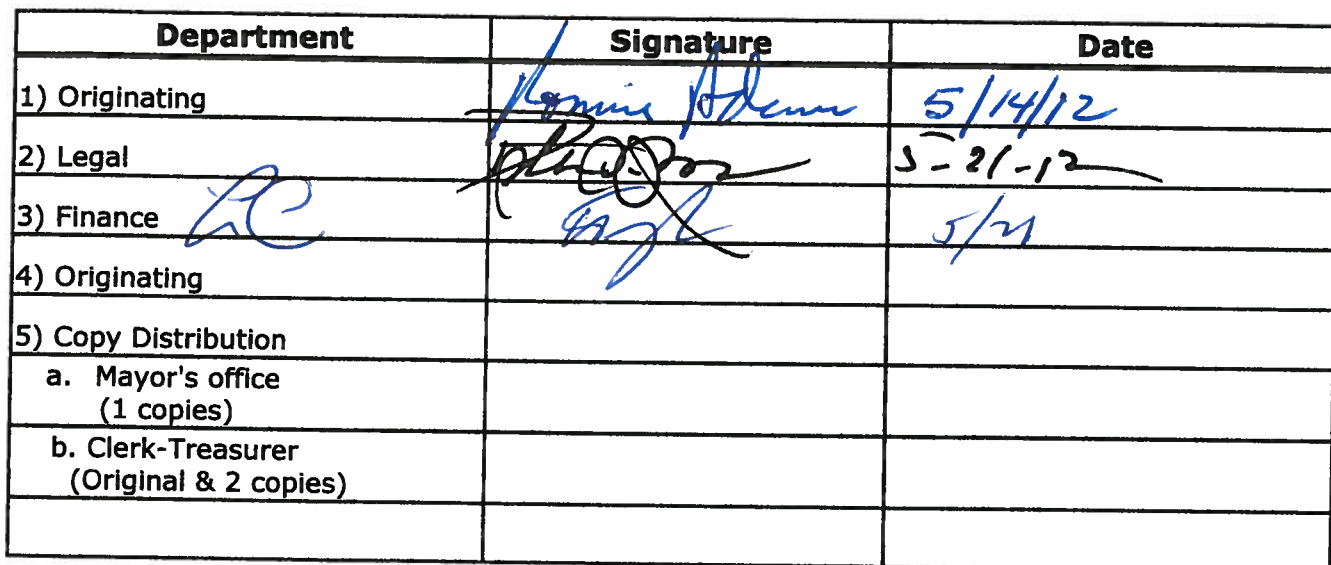 Department Signature Date
1) Originating 5/14/12
2) Legal 5-21-12
3) Finance LC 5/21
4) Originating
5) Copy Distribution
a. Mayor's office
(1 copies)
b. Clerk-Treasurer
(Original & 2 copies)